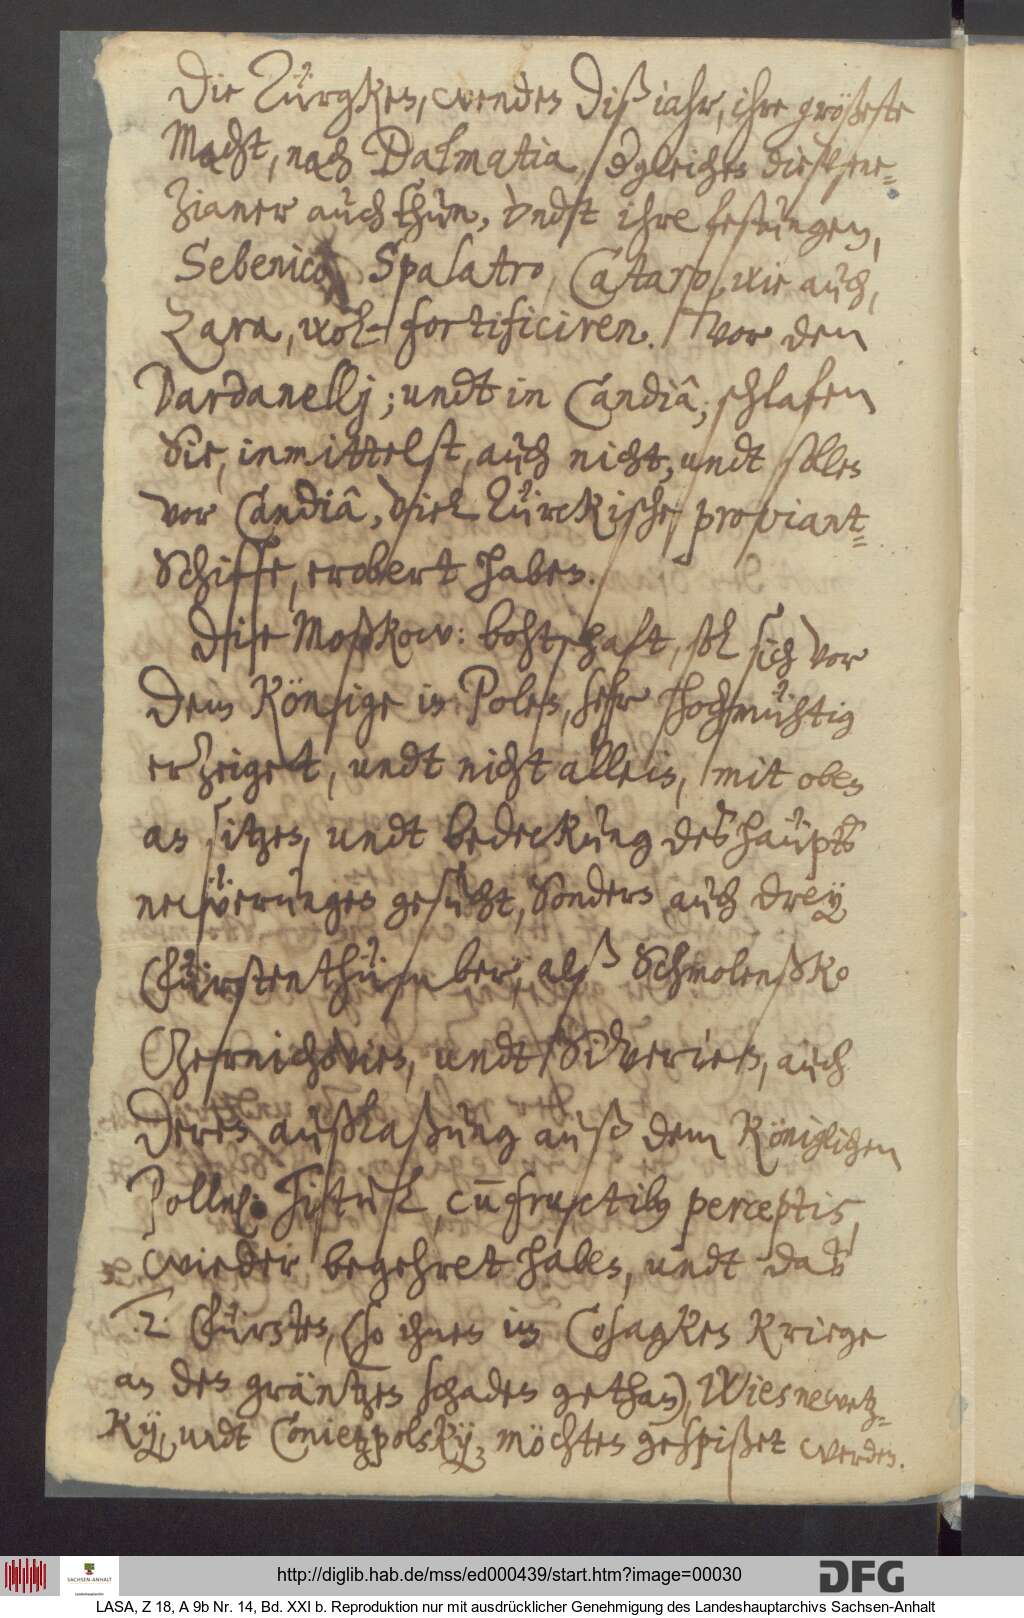 Die Türgken, wenden diß iahr, ihre größeste
Macht, nach Dalmatia, dgleichen die Vene-
zianer auch thun, vndt ihre festungen,
Sebenico, Spalatro, Cataro, wie auch,
Zara, wol fortificiren. Vor den
Dardanellj; undt in Candiâ, schlafen
Sie, inmittelst, auch nicht, undt sollen
vor Candiâ, viel Türckische proviant-
Schiffe, erobert haben.
Die Moßkow: bohtschaft, sol sich vor
dem Könige in Polen, sehr hochmühtig
erzeiget, undt nicht allein, mit oben
an sitzen, undt bedeckung des haüpts
neüerungen gesucht, Sondern auch drey
Fürstenthümber, alß Schmolenßko
Czernichovien, undt Siverien, auch
deren außlaßung auß dem Königlichen
Polln: Tistul, cu fructib9 perceptis,
wieder begehret haben, undt das
.2. Fürsten, (so ihnen im Cosagken Kriege
an den gräntzen schaden gethan), Wiesnewetz-
kÿ, undt Conietzpolskÿ, möchten gespißet werden.
http://diglib.hab.de/mss/ed000439/start.htm?image=00030
SACHSEN-ANHALT
Landeshauptarchiv
DFG
LASA, Z 18, A 9b Nr. 14, Bd. XXI b. Reproduktion nur mit ausdrücklicher Genehmigung des Landeshauptarchivs Sachsen-Anhalt